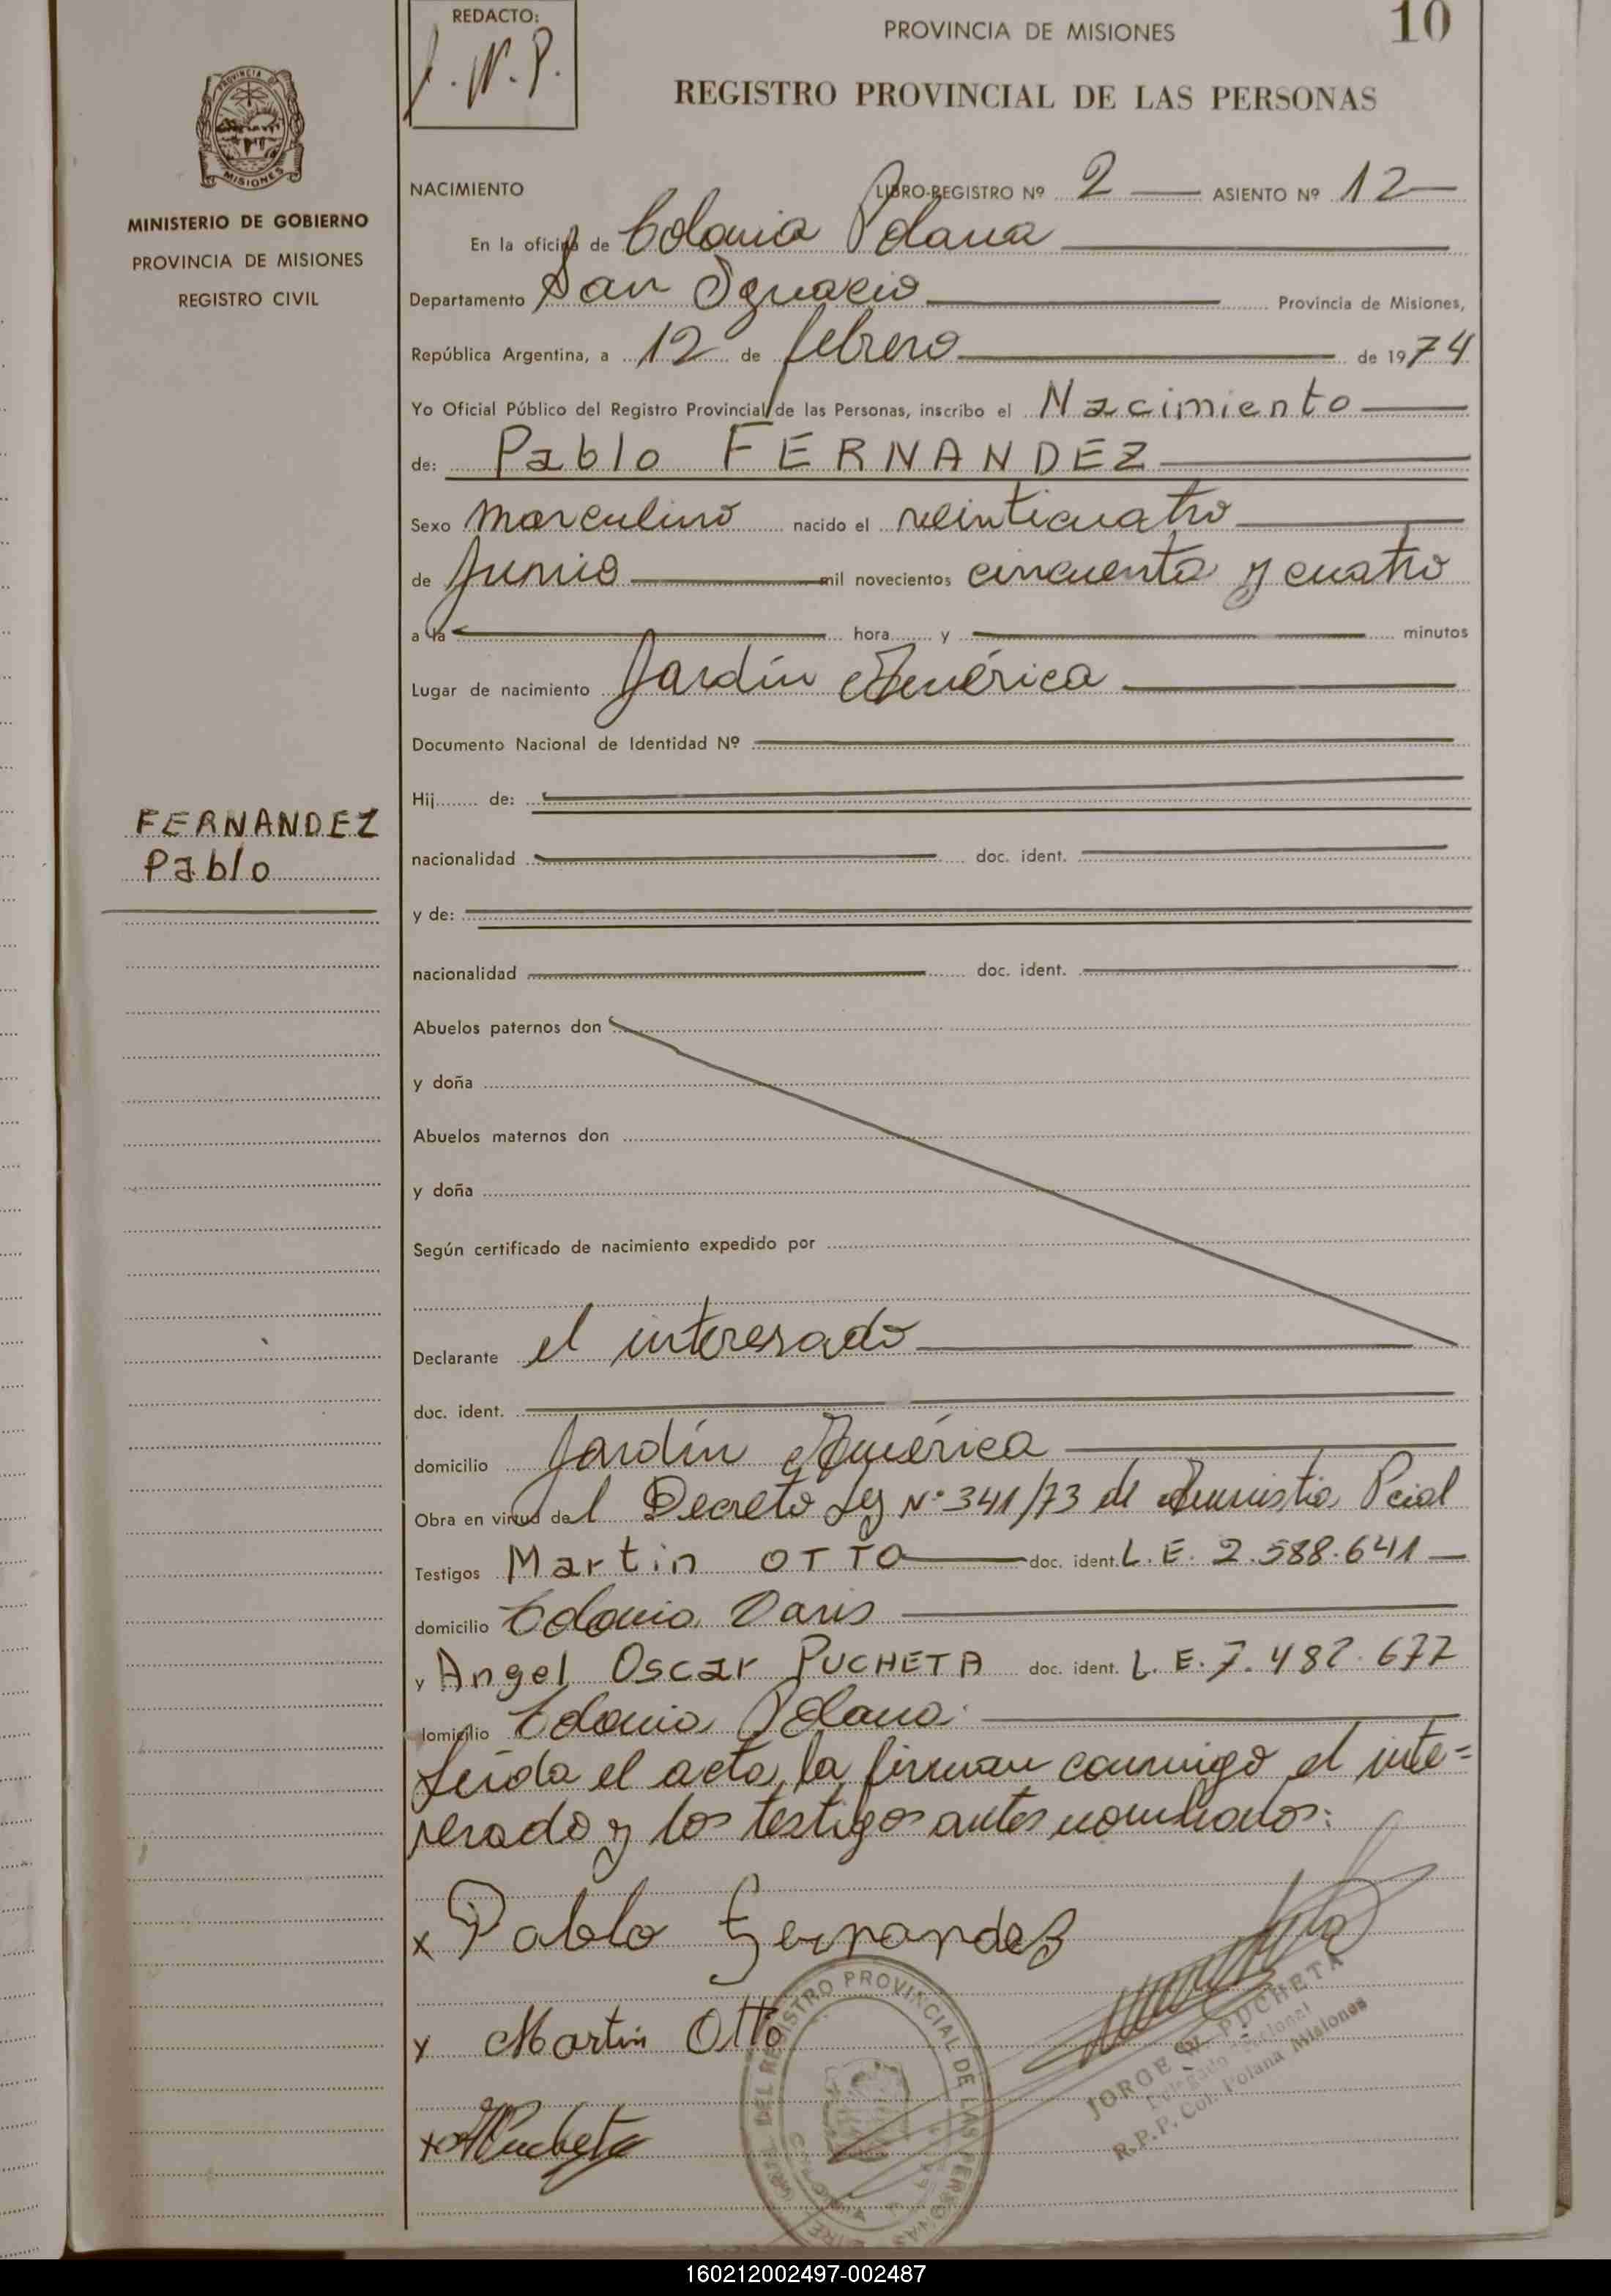 REDACTO:
J. W. P.
PROVINCIA DE MISIONES
10
REGISTRO PROVINCIAL DE LAS PERSONAS
MISIONES
MINISTERIO DE GOBIERNO
PROVINCIA DE MISIONES
REGISTRO CIVIL
NACIMIENTO LIBRO-REGISTRO Nº 2 ASIENTO Nº 12
En la oficina de Colonia Polana
Departamento San Ignacio Provincia de Misiones,
República Argentina, a 12 de febrero de 1974
Yo Oficial Público del Registro Provincial de las Personas, inscribo el Nacimiento
de: Pablo FERNANDEZ
Sexo masculino nacido el veinticuatro
de Junio mil novecientos cincuenta y cuatro
a la hora y minutos
Lugar de nacimiento Jardín América
Documento Nacional de Identidad Nº
Hij de:
FERNANDEZ
Pablo
nacionalidad doc. ident.
y de:
nacionalidad doc. ident.
Abuelos paternos don
y doña
Abuelos maternos don
y doña
Según certificado de nacimiento expedido por
Declarante el interesado
doc. ident.
domicilio Jardín América
Obra en virtud del Decreto Ley Nº 341/73 de Amnistia Pcial
Testigos Martin OTTO doc. ident. L. E. 2.588.641
domicilio Colonia
y Angel Oscar PUCHETA doc. ident. L. E. 7.482.677
domicilio Colonia Polana.
Leida el acta, la firman conmigo el inte=
resado y los testigos antes nombrados:
x Pablo Fernandez
y Martin Otto
x Pucheta
DEL REGISTRO PROVINCIAL DE LAS PERSONAS
JORGE W. PUCHETA
Delegado Seccional
R.P.P. Col. Polana Misiones
160212002497-002487